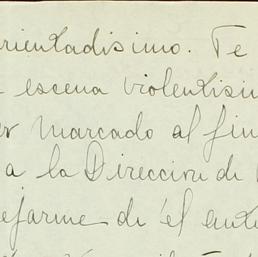 rientadisimo. Te
escena violentisi
marcado al fin
a la Direccion de
ejarme de él ante